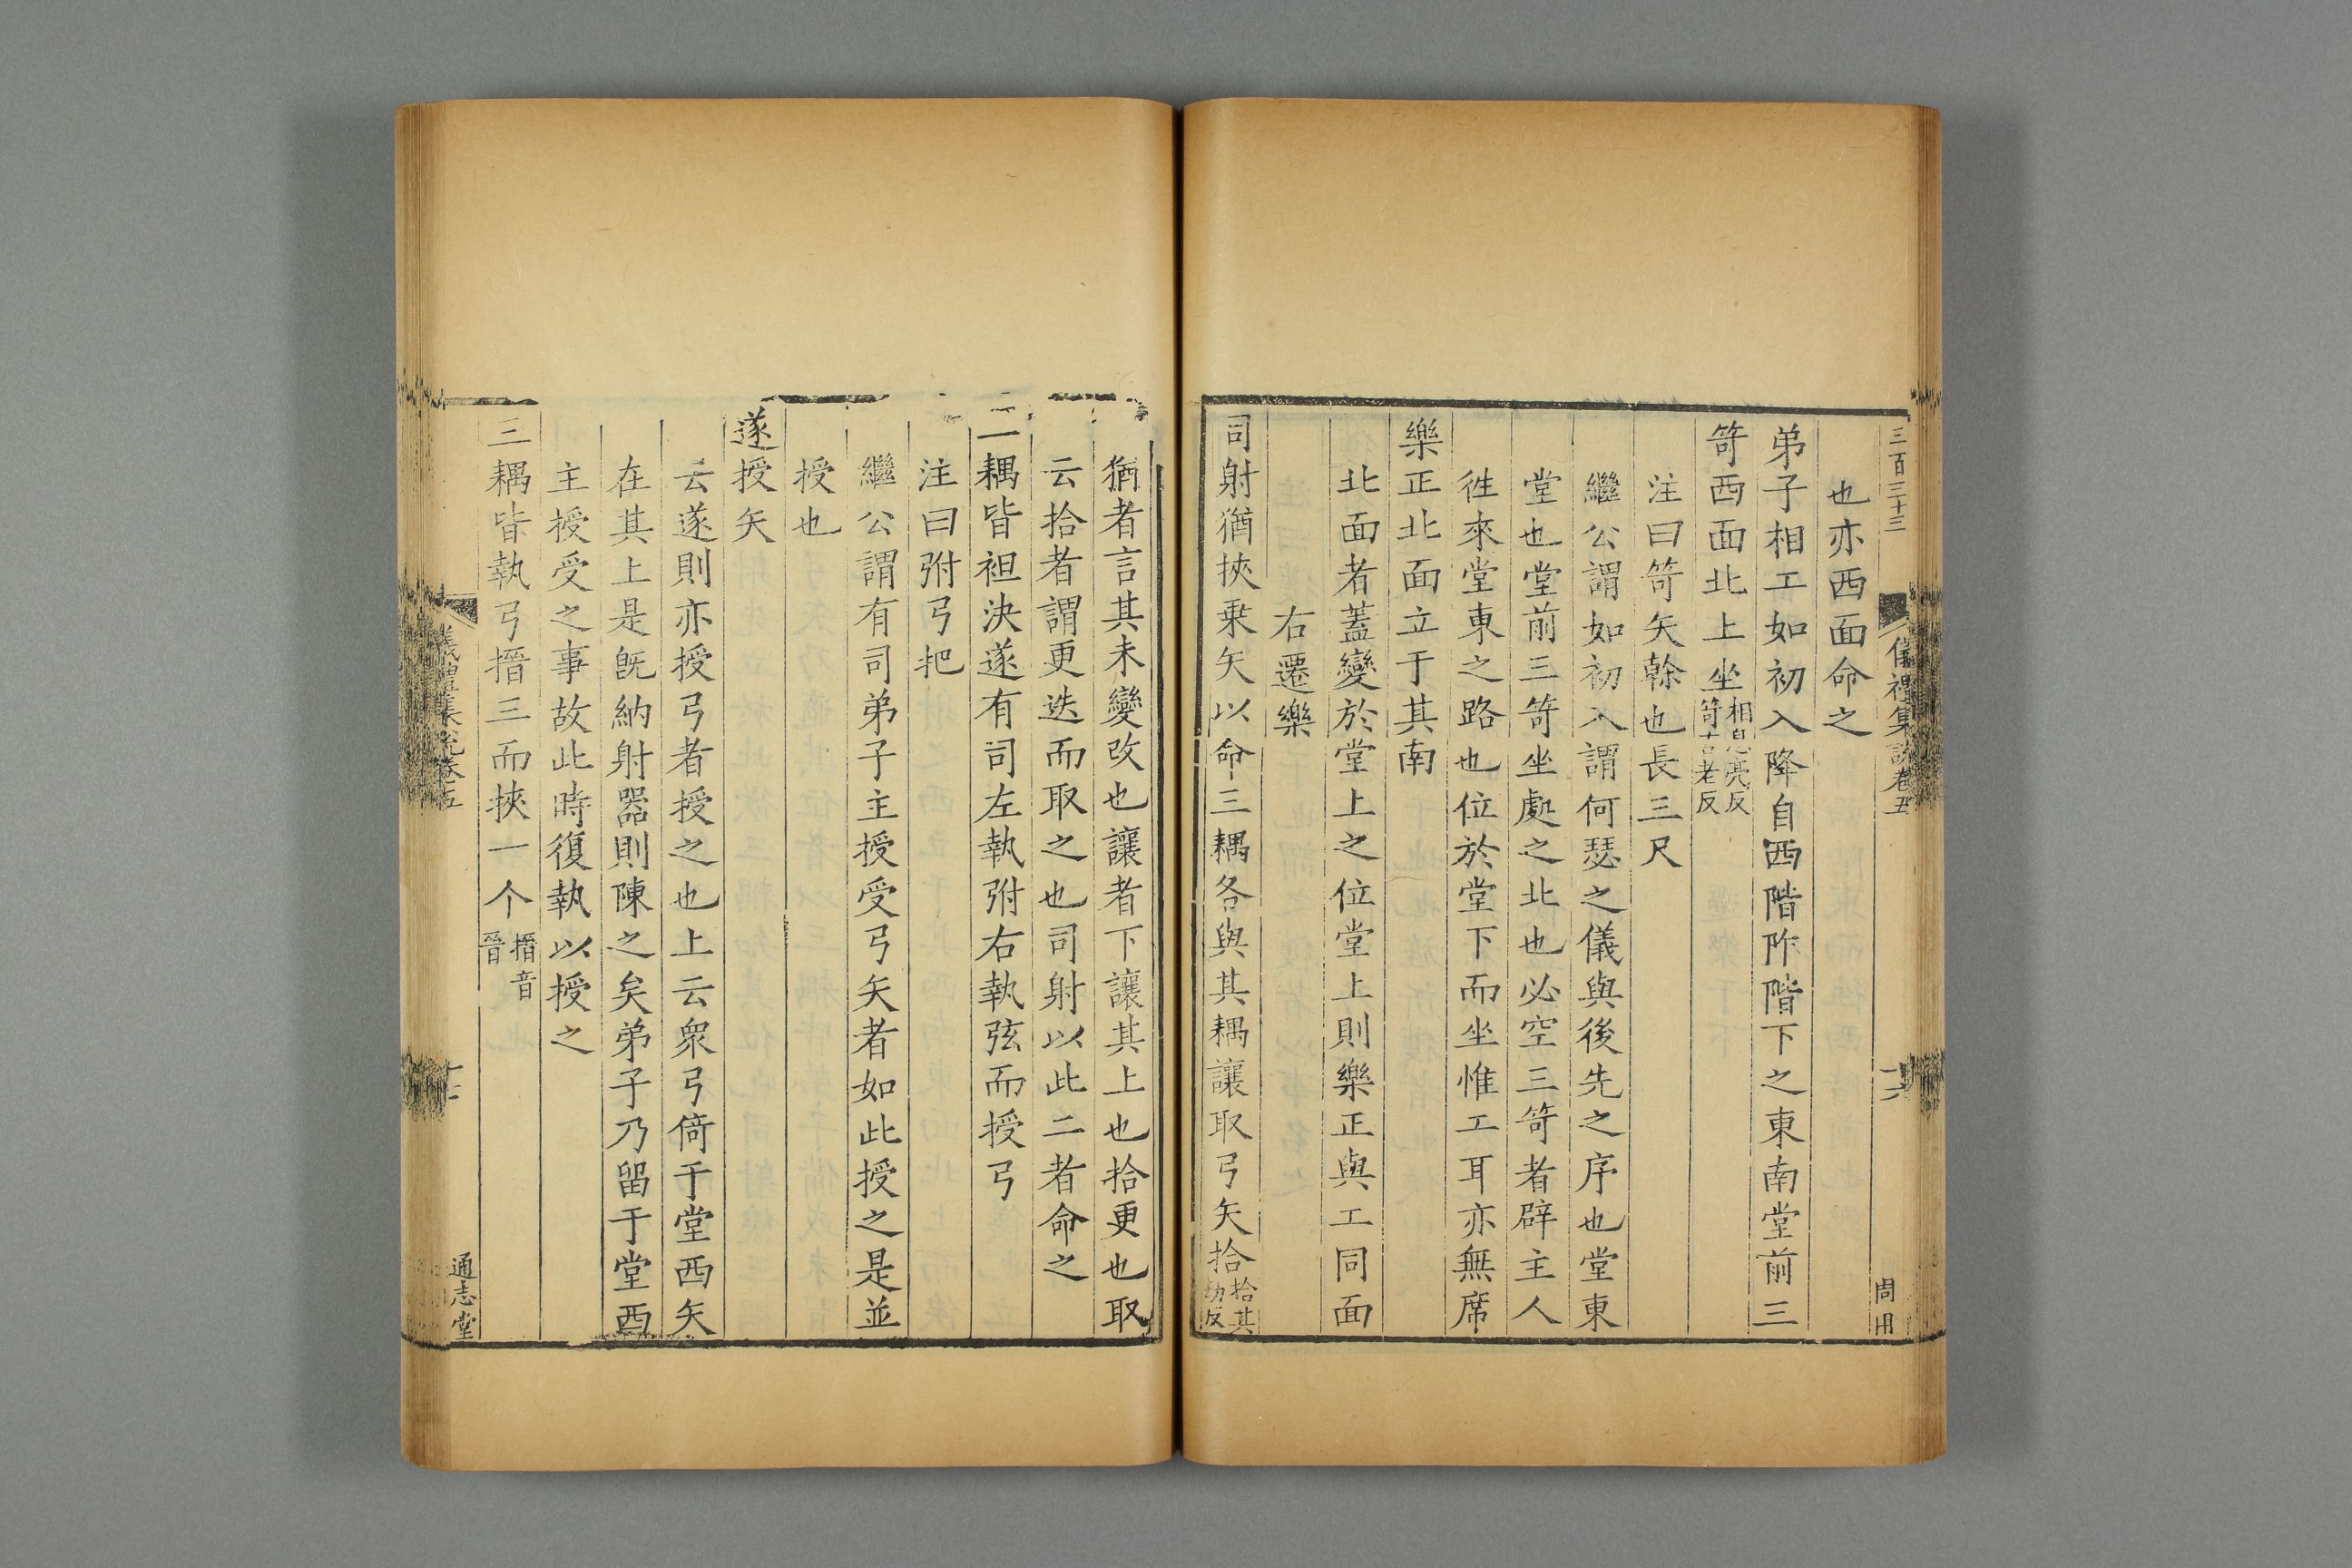 三百三十三 儀禮集說卷五 十六
也亦西面命之
弟子相工如初入降自西階阼階下之東南堂前三
笴西面北上坐相息亮反笴古老反
注曰笴矢幹也長三尺
繼公謂如初入謂何瑟之儀與後先之序也堂東
堂也堂前三笴坐處之北也必空三笴者辟主人
徃來堂東之路也位於堂下而坐惟工耳亦無席
樂正北面立于其南
北面者蓋變於堂上之位堂上則樂正與工同面
右遷樂
司射猶挾乗矢以命三耦各與其耦讓取弓矢拾拾其劫反
猶者言其未變改也讓者下讓其上也拾更也取
云拾者謂更迭而取之也司射以此二者命之
三耦皆袒決遂有司左執弣右執弦而授弓
注曰弣弓把
繼公謂有司弟子主授受弓矢者如此授之是並
授也
遂授矢
云遂則亦授弓者授之也上云衆弓倚于堂西矢
在其上是旣納射器則陳之矣弟子乃留于堂西
主授受之事故此時復執以授之
三耦皆執弓搢三而挾一个搢音晉
儀禮集說卷五 通志堂